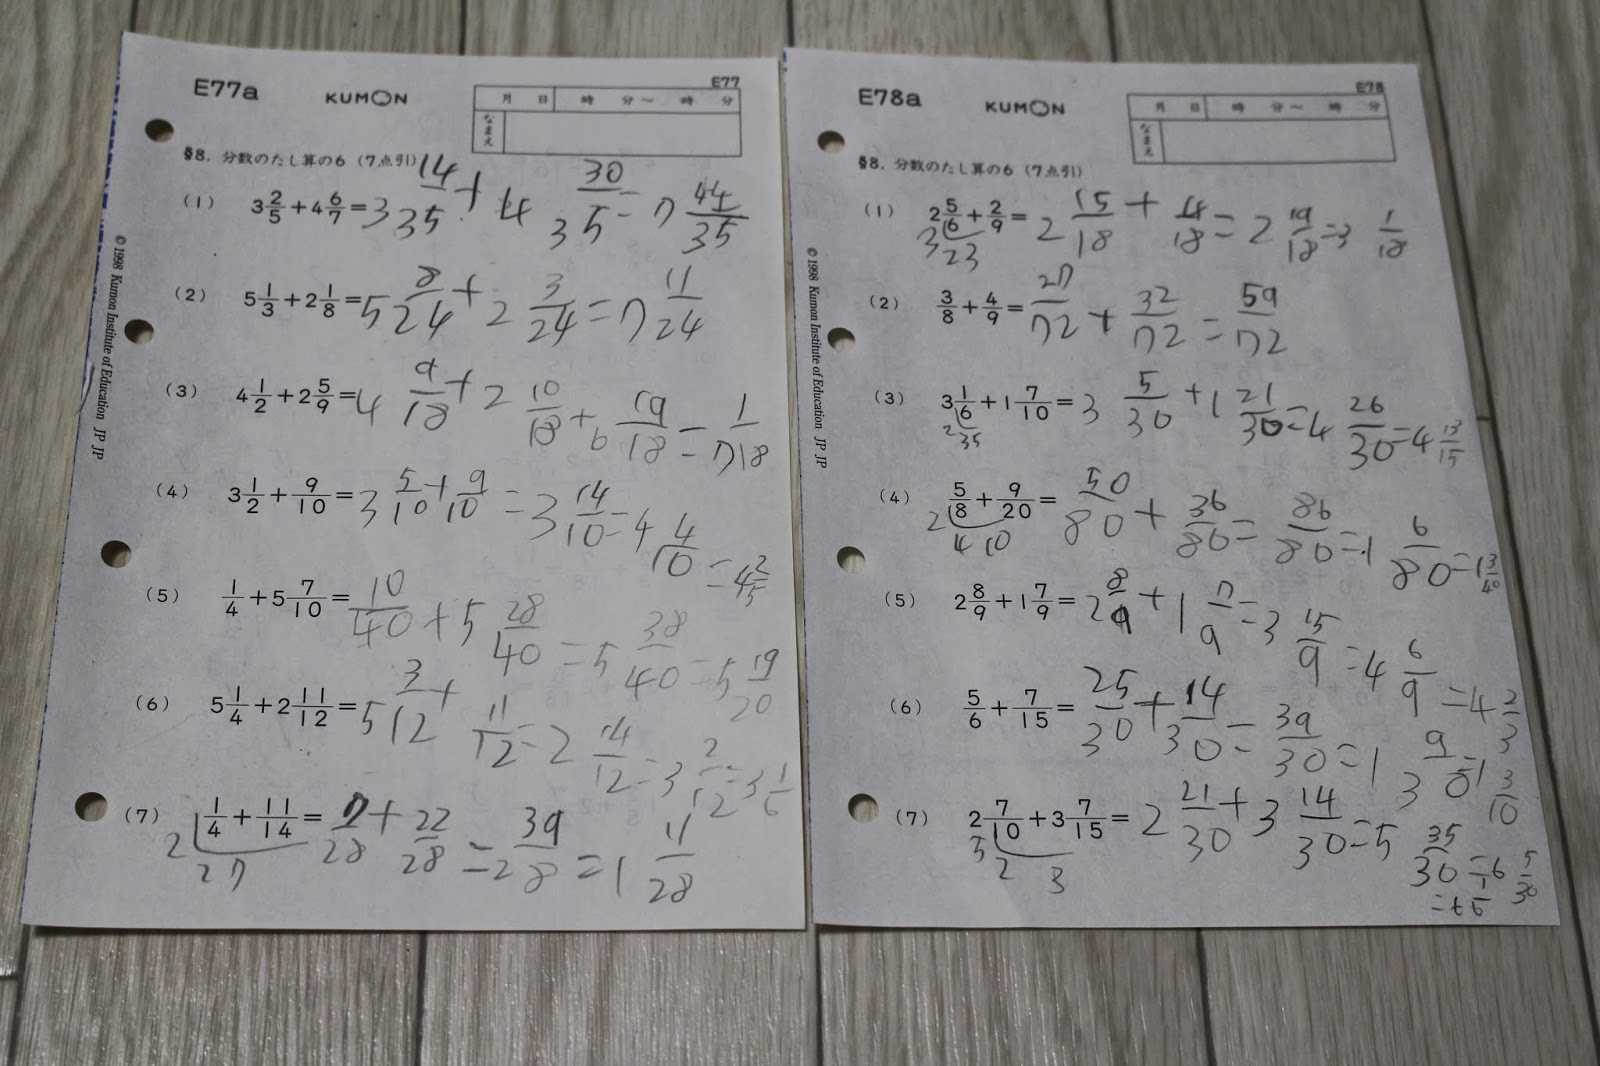 E77a KUMON E77
月 日 時 分～ 時 分
なまえ
§8. 分数のたし算の6 (7点引)
(1) 3 2/5 + 4 6/7 = 3 14/35 + 4 30/35 = 7 44/35
(2) 5 1/3 + 2 1/8 = 5 8/24 + 2 3/24 = 7 11/24
(3) 4 1/2 + 2 5/9 = 4 9/18 + 2 10/18 + 6 19/18 = 7 1/18
(4) 3 1/2 + 9/10 = 3 5/10 + 9/10 = 3 14/10 = 4 4/10 = 4 2/5
(5) 1/4 + 5 7/10 = 10/40 + 5 28/40 = 5 38/40 = 5 19/20
(6) 5 1/4 + 2 11/12 = 5 3/12 + 11/12 = 2 14/12 = 3 2/12 = 3 1/6
(7) 1/4 + 11/14 = 7/28 + 22/28 = 39/28 = 1 11/28
2 2 7
© 1998 Kumon Institute of Education JP JP
E78a KUMON E78
月 日 時 分～ 時 分
なまえ
§8. 分数のたし算の6 (7点引)
(1) 2 5/6 + 2/9 = 2 15/18 + 4/18 = 2 19/18 = 3 1/18
3 2 3
(2) 3/8 + 4/9 = 27/72 + 32/72 = 59/72
(3) 3 1/6 + 1 7/10 = 3 5/30 + 1 21/30 = 4 26/30 = 4 13/15
2 3 5
(4) 5/8 + 9/20 = 50/80 + 36/80 = 86/80 = 1 6/80 = 1 3/40
2 4 10
(5) 2 8/9 + 1 7/9 = 2 8/9 + 1 7/9 = 3 15/9 = 4 6/9 = 4 2/3
(6) 5/6 + 7/15 = 25/30 + 14/30 = 39/30 = 1 9/30 = 1 3/10
(7) 2 7/10 + 3 7/15 = 2 21/30 + 3 14/30 = 5 35/30 = 6 5/30
5 2 3
= 6 1/6
© 1998 Kumon Institute of Education JP JP